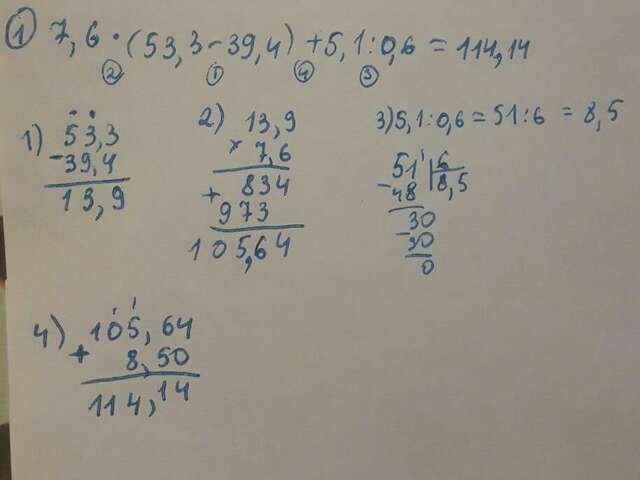 ① 7,6 · (53,3 - 39,4) + 5,1 : 0,6 = 114,14
② ① ④ ③
1) 53,3
- 39,4
13,9
2) 13,9
× 7,6
+ 834
973
105,64
3) 5,1 : 0,6 = 51 : 6 = 8,5
51 6
- 48 8,5
30
- 30
0
4) 105,64
+ 8,50
114,14